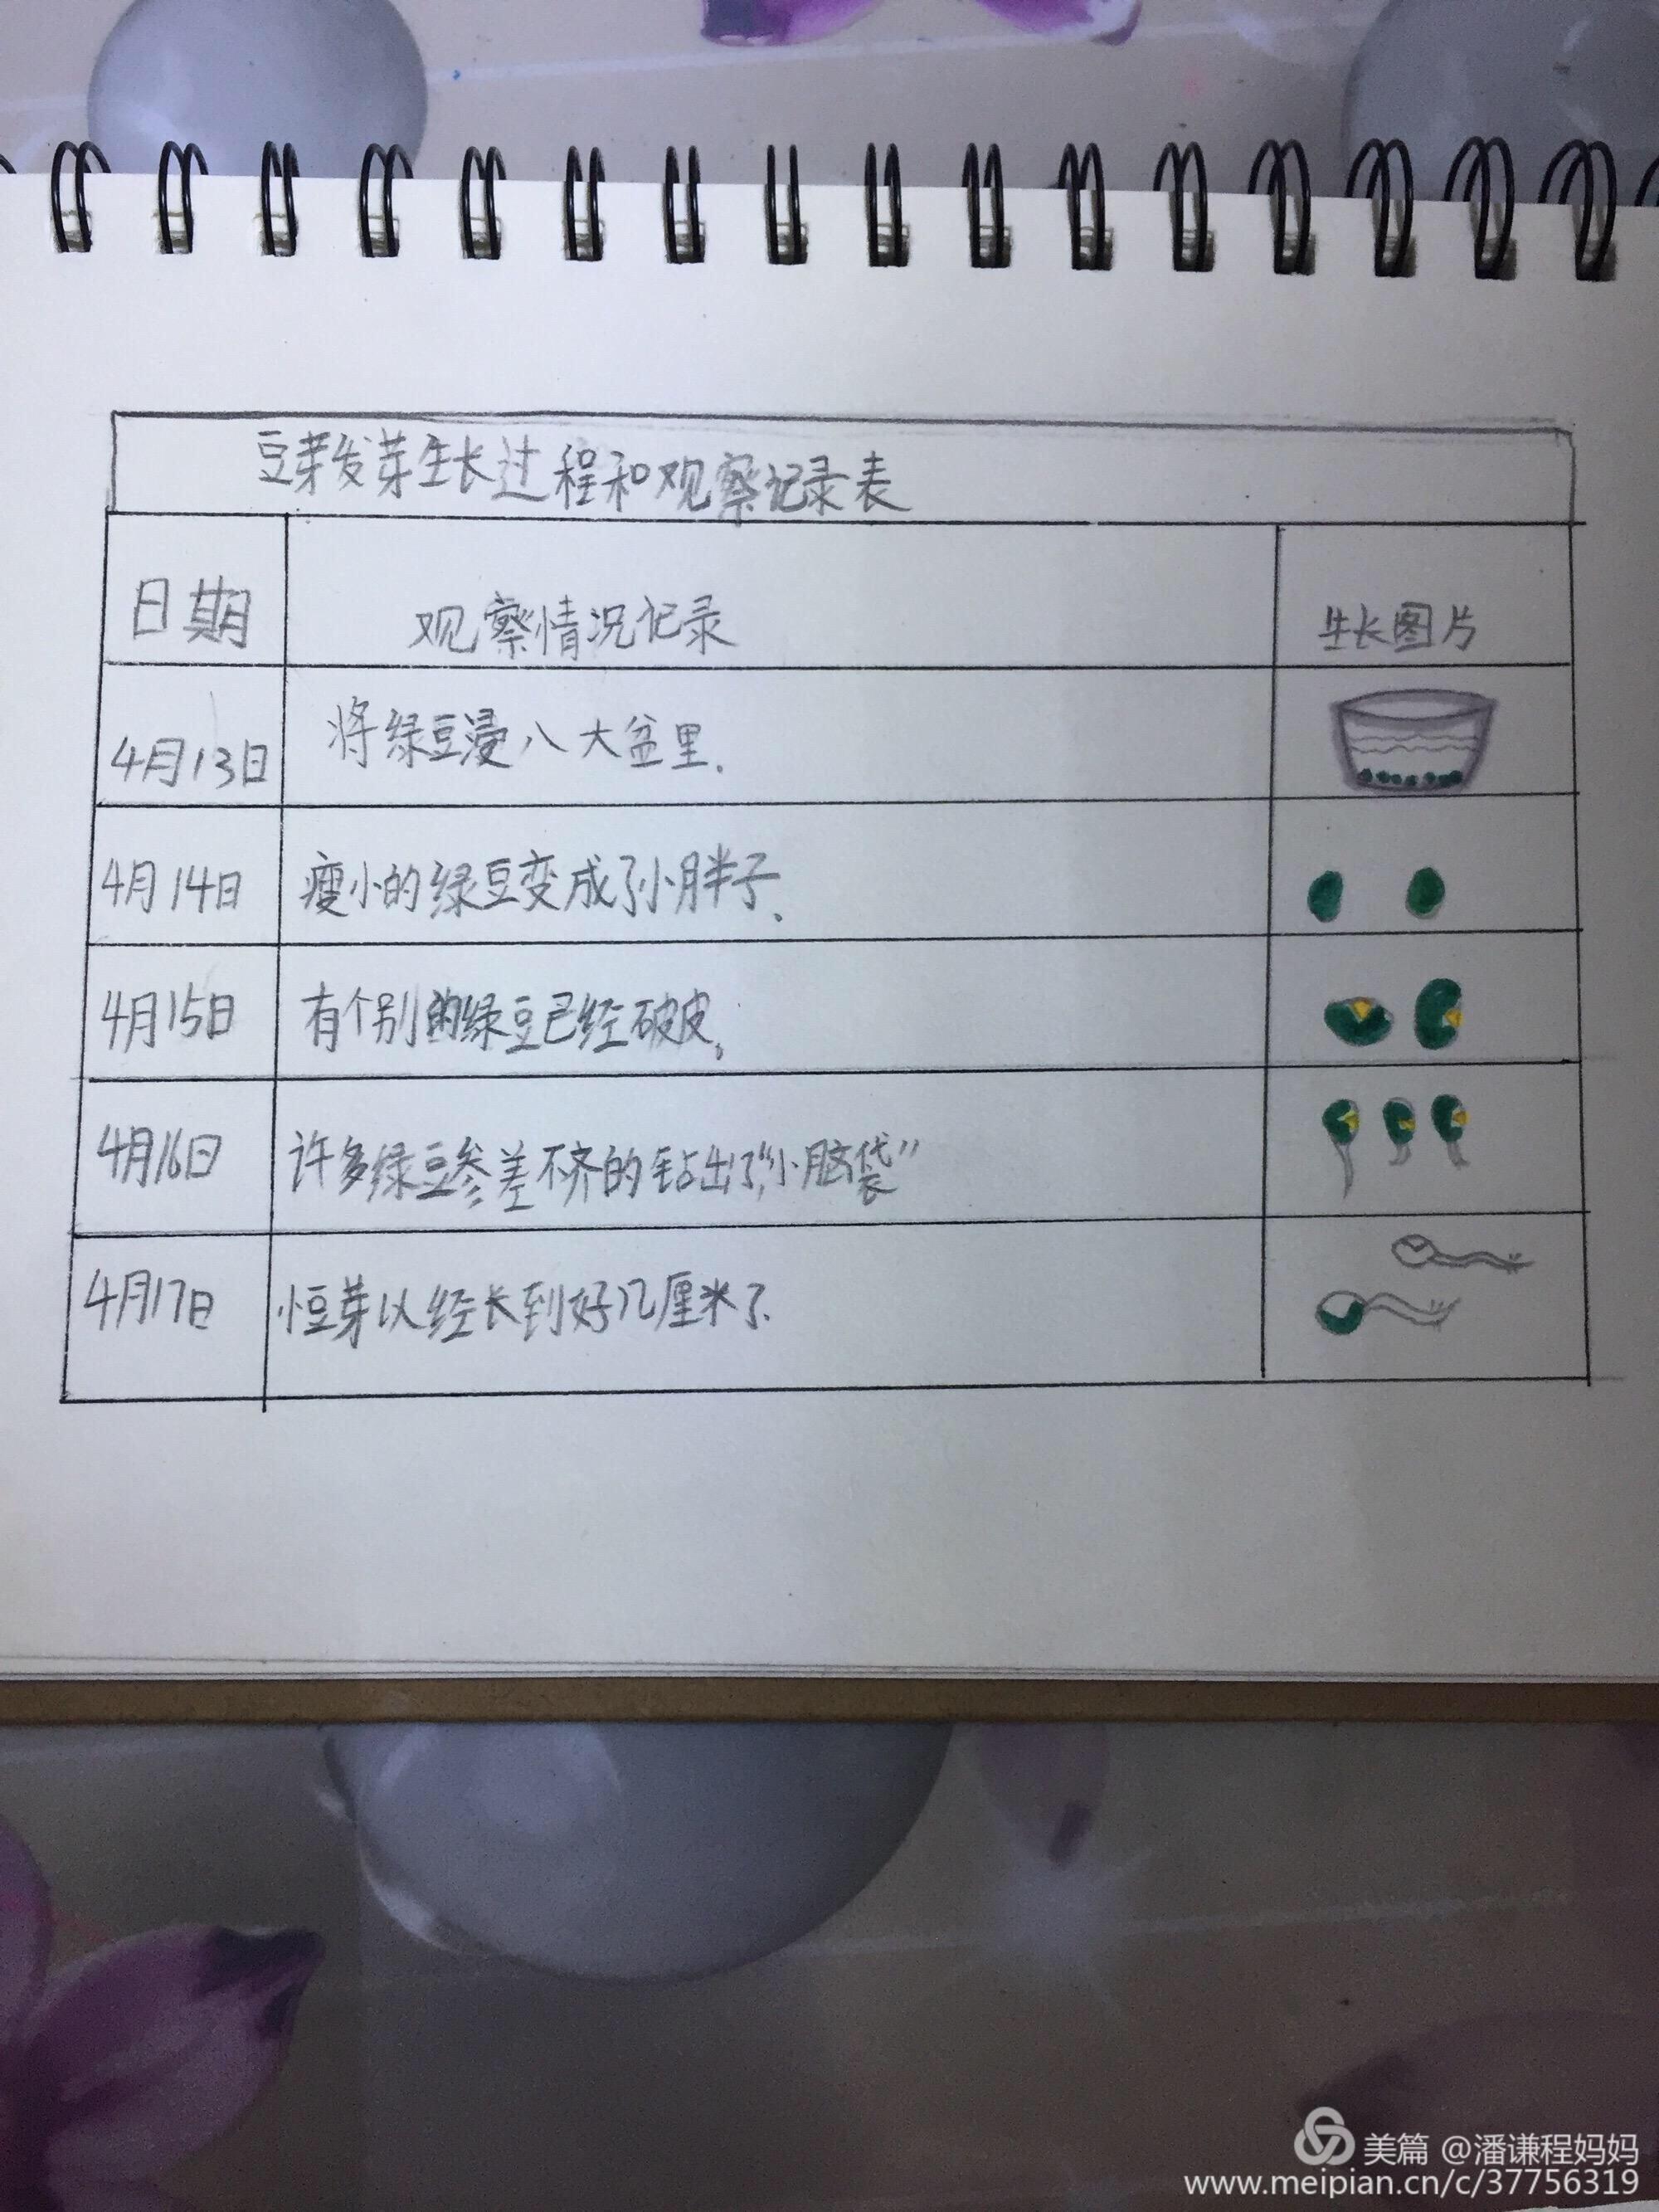 豆芽发芽生长过程和观察记录表
日期 观察情况记录 生长图片
4月13日 将绿豆浸八大盆里.
4月14日 瘦小的绿豆变成了小胖子.
4月15日 有个别的绿豆已经破皮。
4月16日 许多绿豆参差不齐的钻出了“小脑袋”
4月17日 小豆芽以经长到好几厘米了.
美篇 @潘谦程妈妈
www.meipian.cn/c/37756319